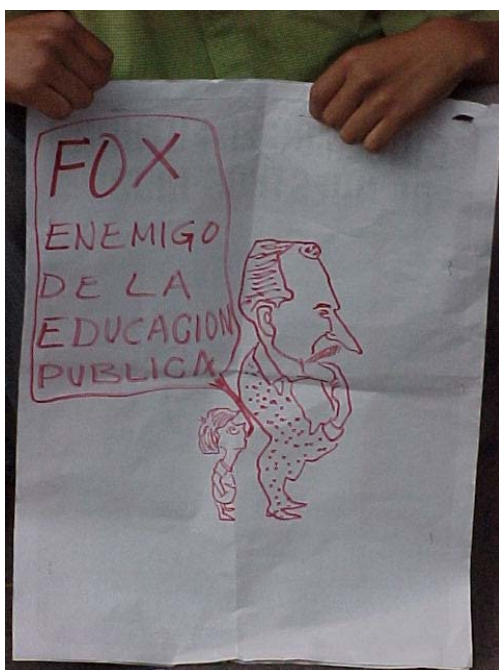 FOX
ENEMIGO
DE LA
EDUCACION
PUBLICA